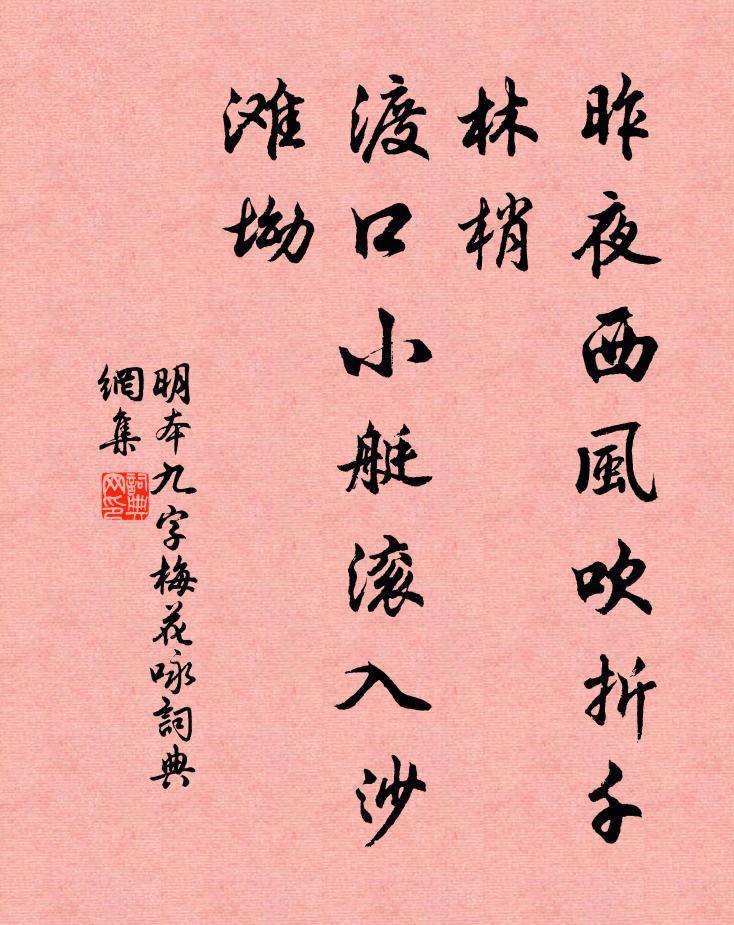 昨夜西風吹折千
林梢
渡口小艇滚入沙
滩坳
明本九字梅花咏詞典
網集
詞典
网印